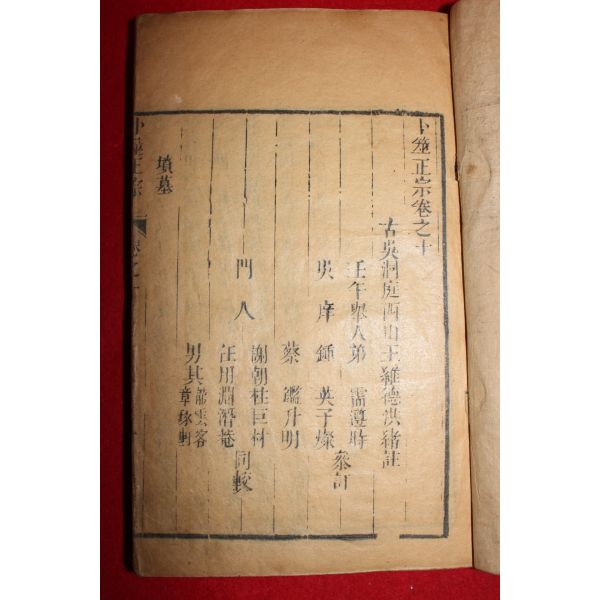 卜筮正宗卷之十
古吳洞庭西山王維德洪緒註
壬午舉人弟 需遵時
吳庠 鍾 英子燦
參訂
蔡 鑑升明
門人
謝朝柱巨材
任用淵潛菴
同較
男其
龍雲客
章琢軒
墳墓
卜筮正宗
卷之十